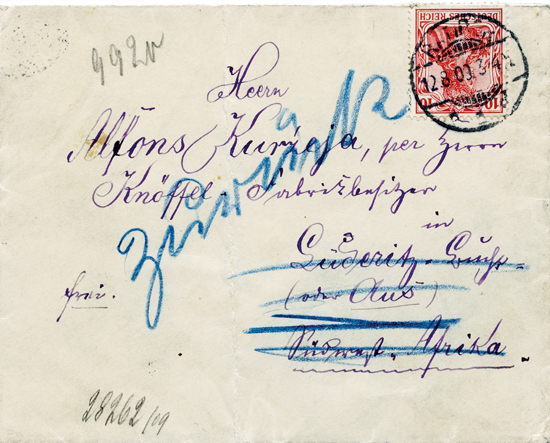 DEUTSCHES REICH
10 10
12.8.09.3-4
992
Herrn
Alfons Kurzeja, per Herrn
Knöffel - Fabrikbesitzer
in
Lüderitz-Bucht
(oder Aus)
Südwest-Afrika.
frei.
zurück
28262/09